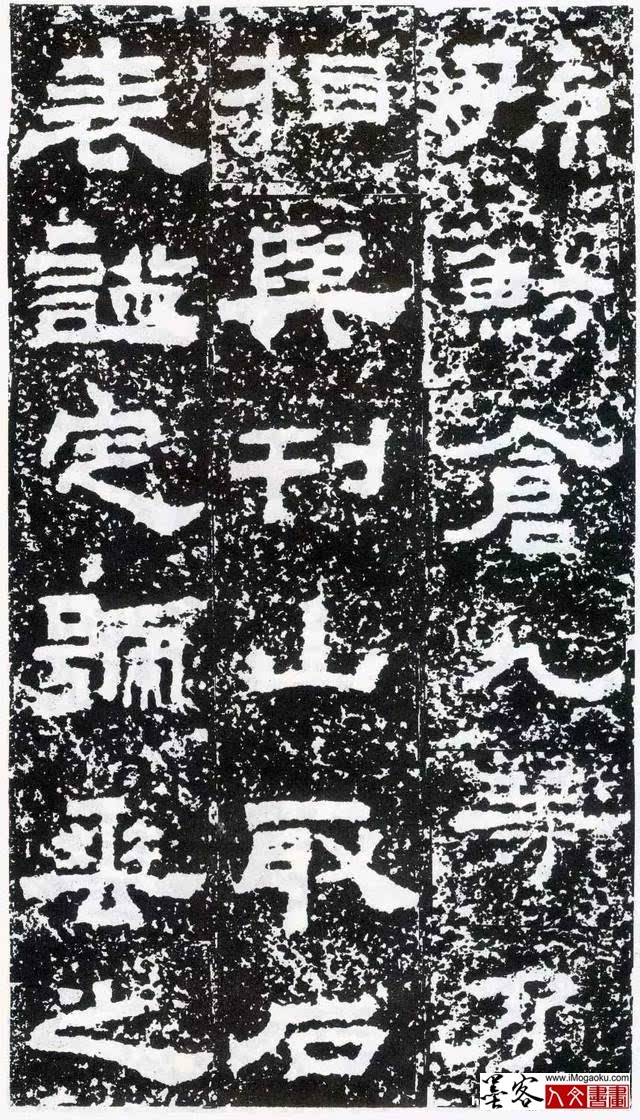 孫魴倉九等乃
相與刊山取石
表謚定號垂之
墨客
www.iMogaoku.com
人文書畫